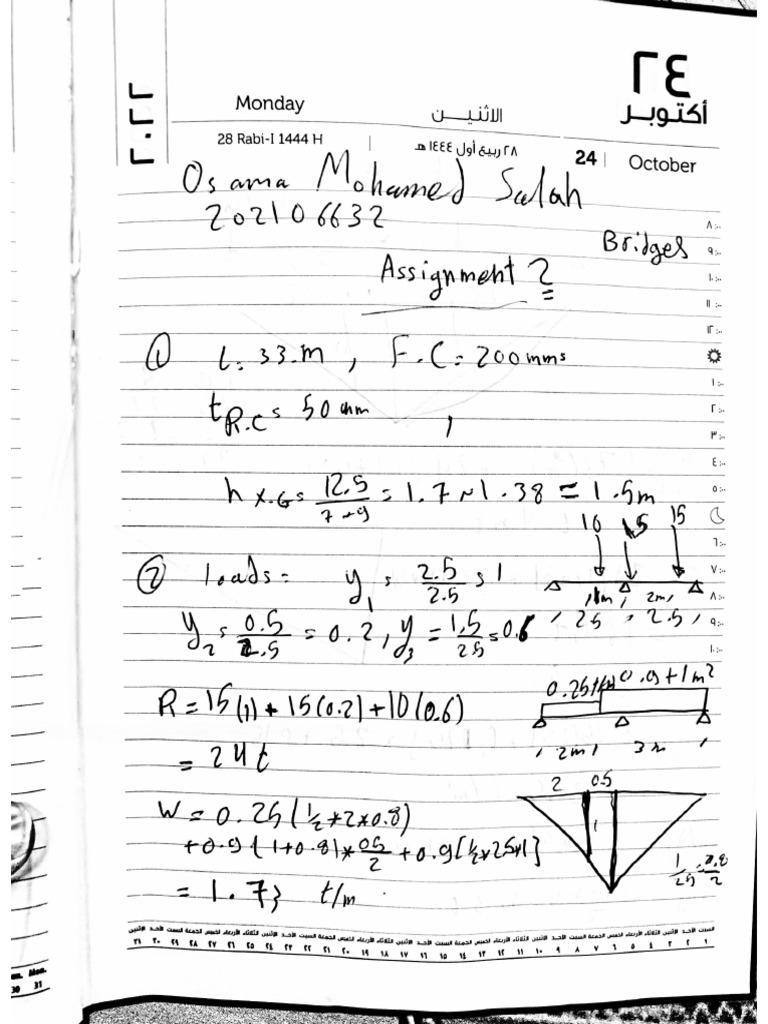 ٢٤
أكتوبر
٢٠٢٢
Monday
الاثنيـــن
28 Rabi-I 1444 H
٢٨ ربيع أول ١٤٤٤ هـ
24
October
Osama Mohamed Salah
202106632
Bridges
Assignment 2
٨:٠٠
٩:٠٠
١٠:٠٠
١١:٠٠
١٢:٠٠
١:٠٠
٢:٠٠
٣:٠٠
٤:٠٠
٥:٠٠
٦:٠٠
٧:٠٠
٨:٠٠
٩:٠٠
١٠:٠٠
① L = 33.m , F.C = 200 mms
tR.C = 50 mm ,
h X.G = 12.5 / 7→9 = 1.7 ~ 1.38 = 1.5m
10 15 15
② loads = y1 = 2.5/2.5 = 1
1m, 2m,
, 2.5 , 2.5 ,
y2 = 0.5/2.5 = 0.2, y3 = 1.5/2.5 = 0.6
0.25 t/m² 0.9 t/m²
R = 15(1) + 15(0.2) + 10(0.6)
= 24t
, 2m, 3m ,
2 0.5
W = 0.25(1/2*2*0.8)
+0.9(1+0.8)*0.5/2 + 0.9[1/2*2.5*1]
1/2.5 = 0.8/2
= 1.73 t/m
السبت الأحد الاثنين الثلاثاء الأربعاء الخميس الجمعة السبت الأحد الاثنين الثلاثاء الأربعاء الخميس الجمعة السبت الأحد الاثنين الثلاثاء الأربعاء الخميس الجمعة السبت الأحد الاثنين الثلاثاء الأربعاء الخميس الجمعة السبت الأحد الاثنين
١ ٢ ٣ ٤ ٥ ٦ ٧ ٨ ٩ ١٠ ١١ ١٢ ١٣ ١٤ ١٥ ١٦ ١٧ ١٨ ١٩ ٢٠ ٢١ ٢٢ ٢٣ ٢٤ ٢٥ ٢٦ ٢٧ ٢٨ ٢٩ ٣٠ ٣١
Mon.
30 31